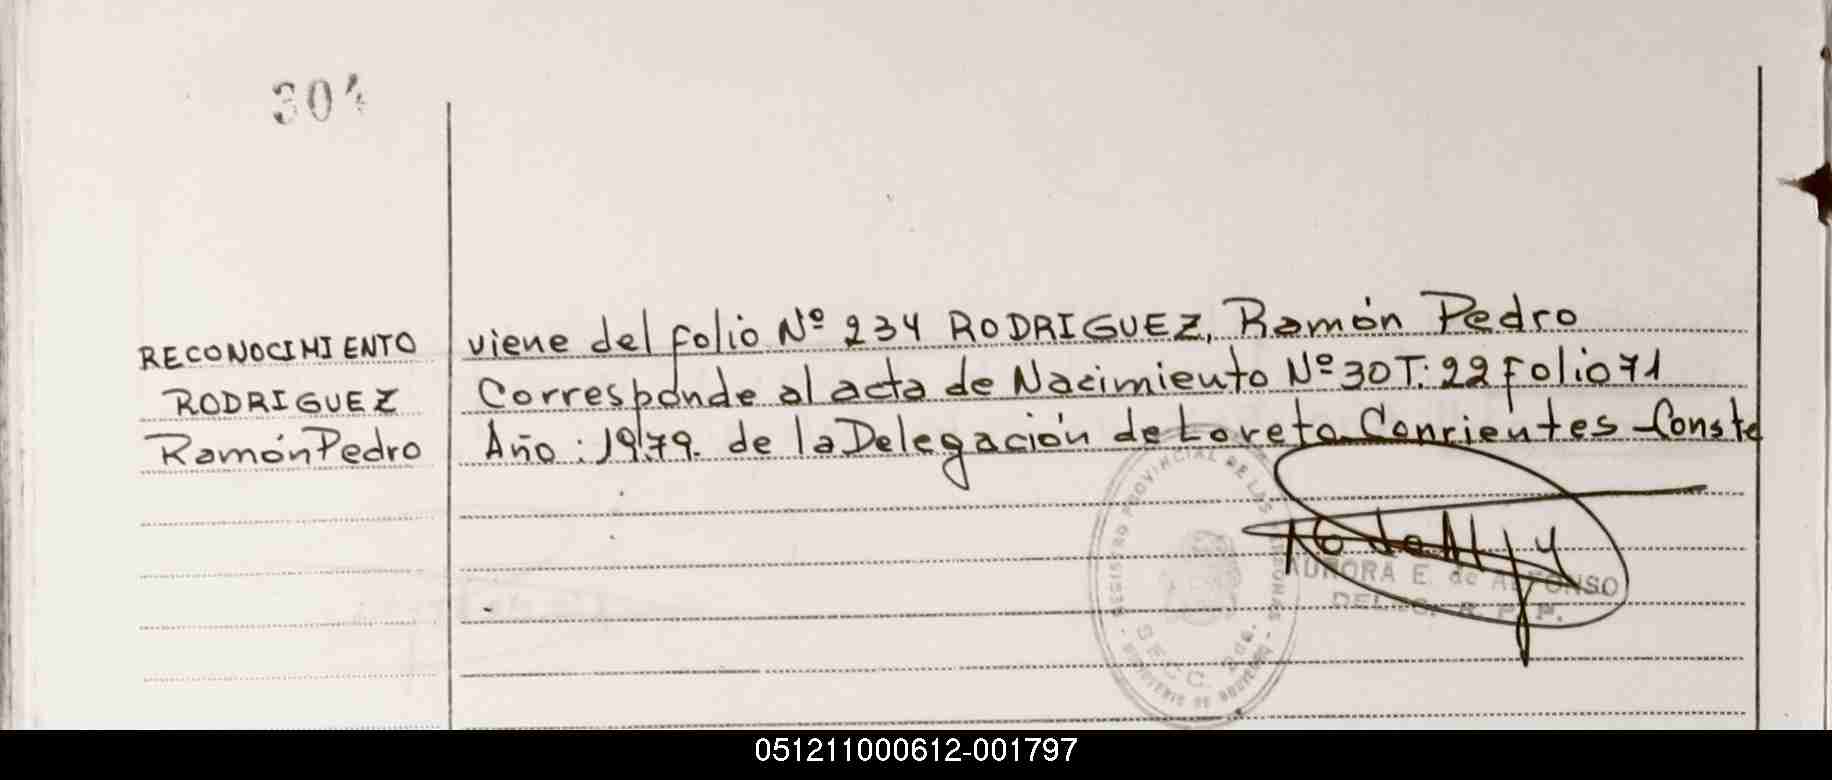 304
RECONOCIMIENTO
RODRIGUEZ
Ramón Pedro
viene del folio Nº 234 RODRIGUEZ, Ramón Pedro
Corresponde al acta de Nacimiento Nº 30 T: 22 Folio 71
Año: 1979. de la Delegación de Loreto Corrientes Conste
REGISTRO PROVINCIAL DE LAS PERSONAS
SECC. 2da.
MINISTERIO DE GOBIERNO
AURORA E. de ALFONSO
051211000612-001797